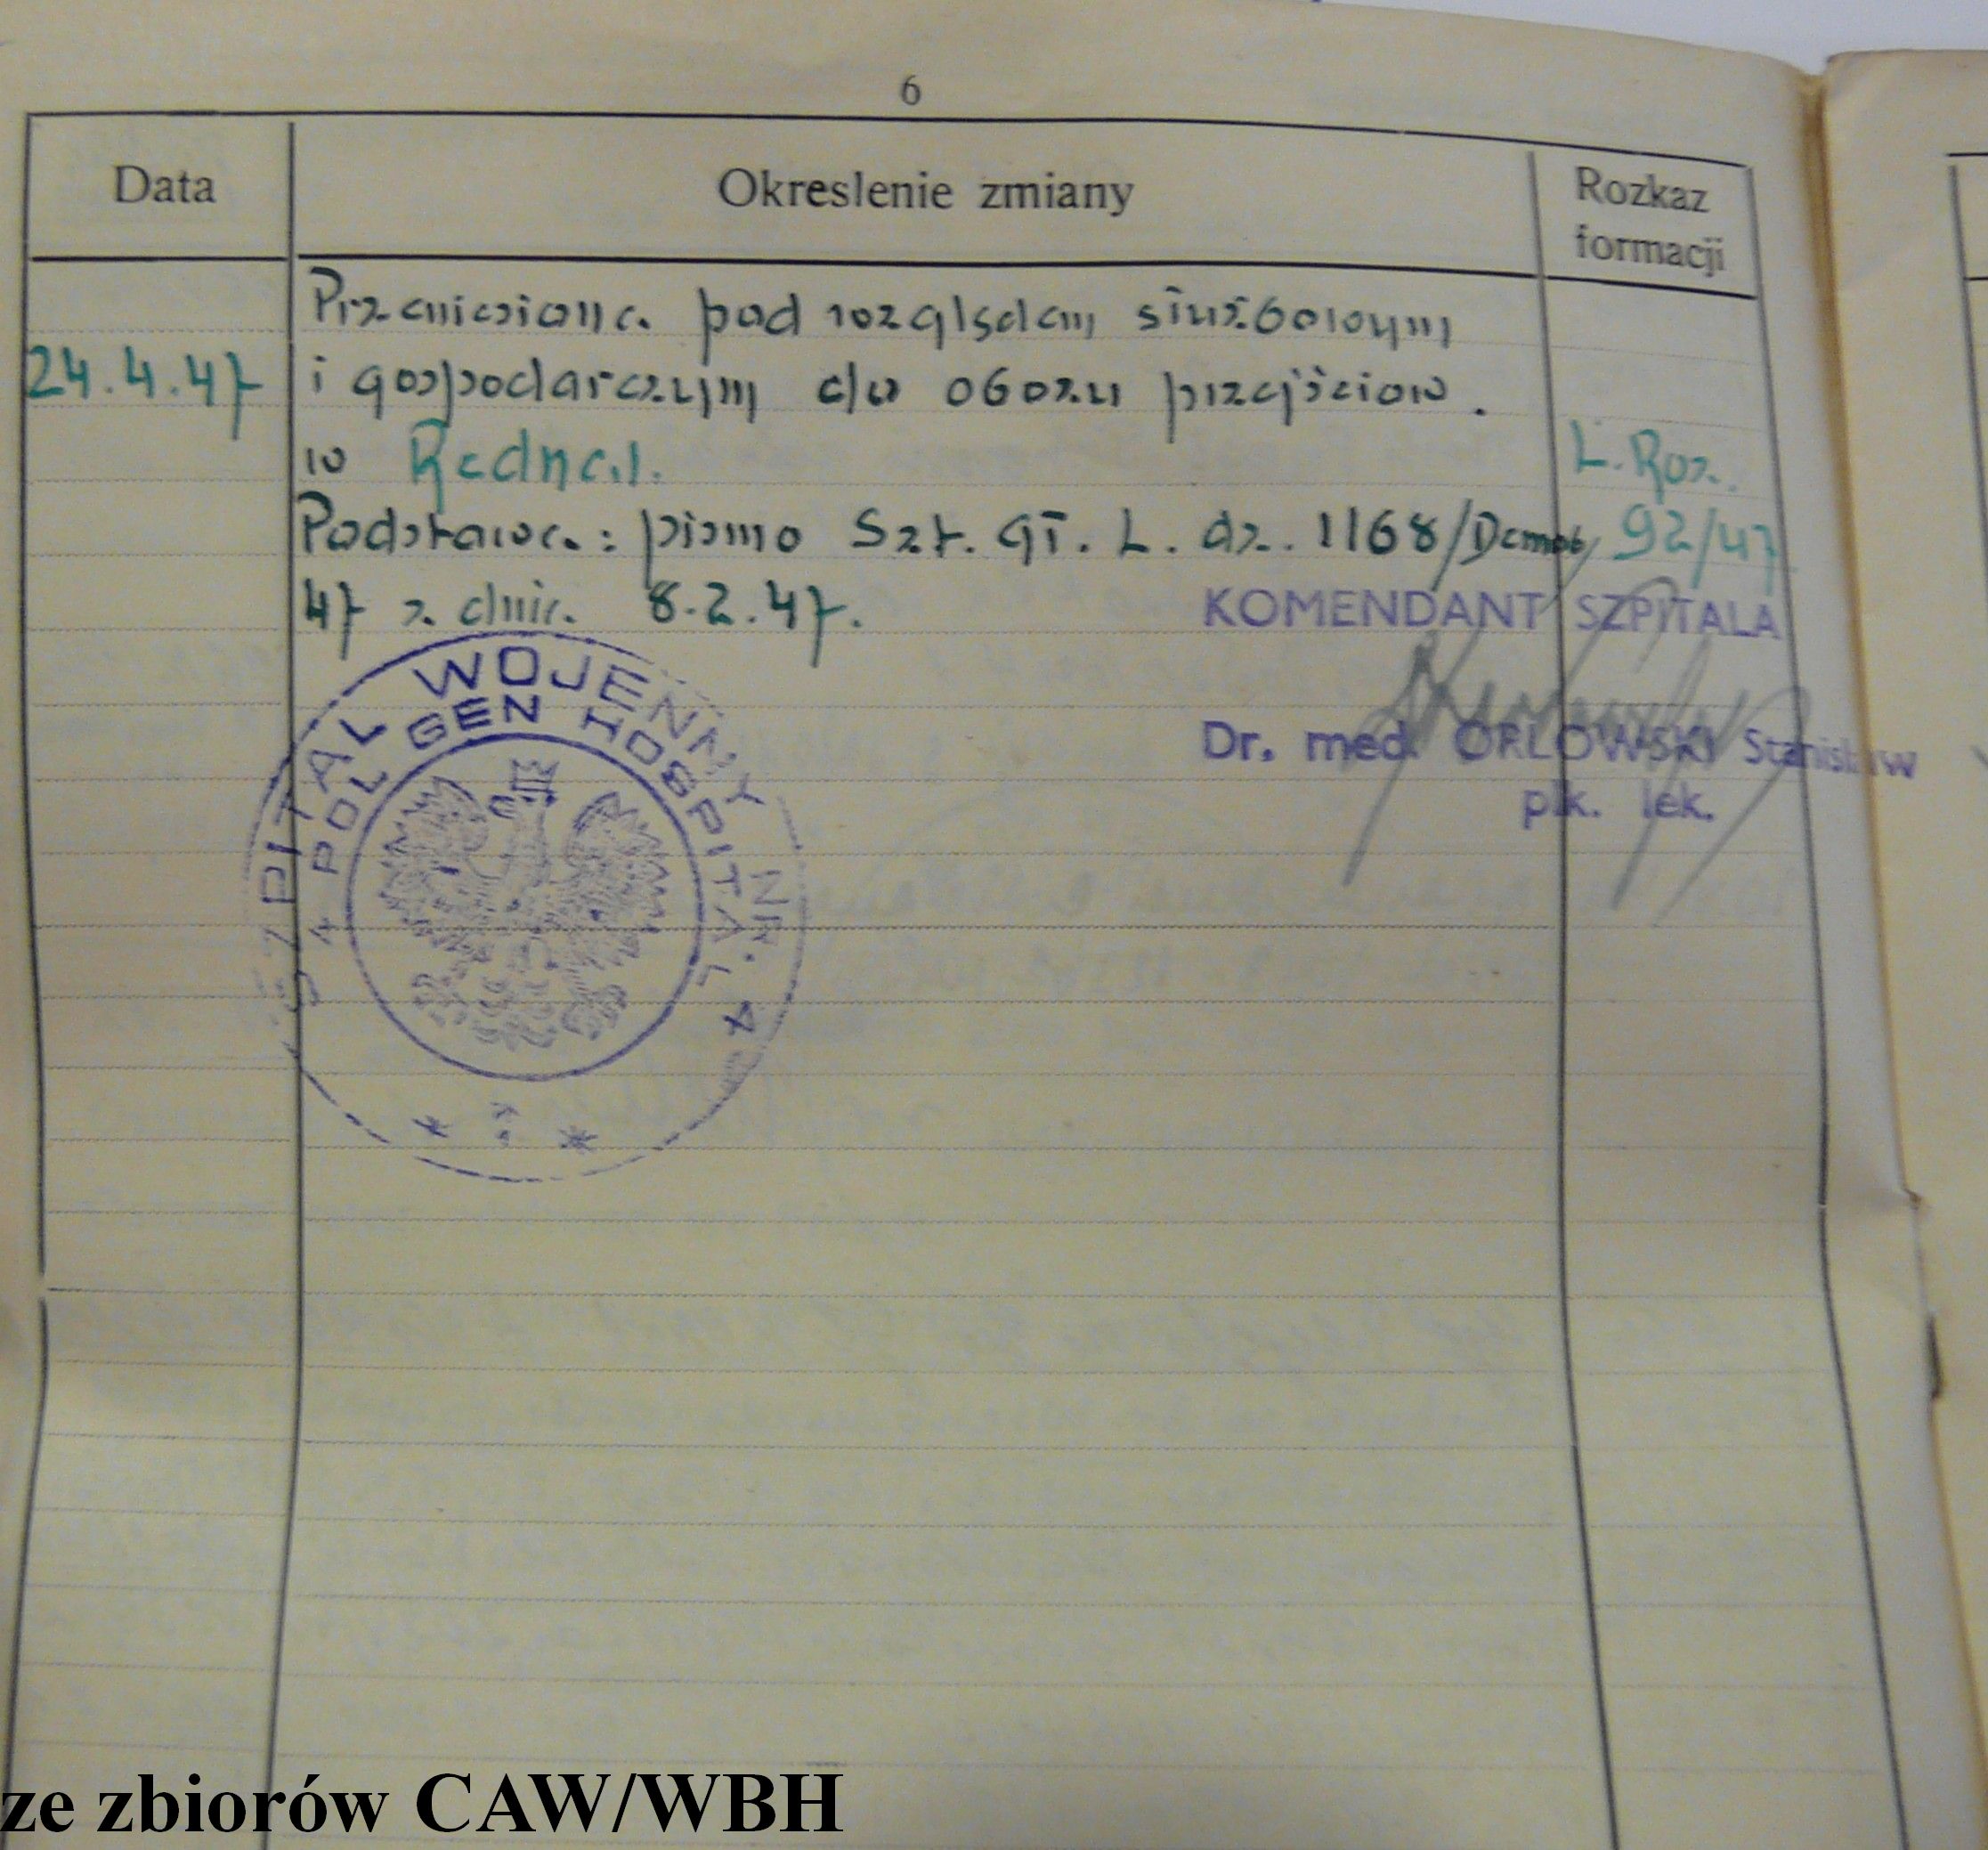 6
Data
Okreslenie zmiany
Rozkaz
formacji
Przeniesiona pod względem służbowym
24.4.47 i gospodarczym do obozu przejściow.
w Rednal.
L. Roz.
Podstawa: pismo Szt. Gł. L. dz. 1168/Demob/ 92/47
47 z dnia 8.2.47.
KOMENDANT SZPITALA
Dr. med. ORLOWSKI Stanislaw
płk. lek.
SZPITAL WOJENNY NR. 4
4 POL GEN HOSPITAL
ze zbiorów CAW/WBH